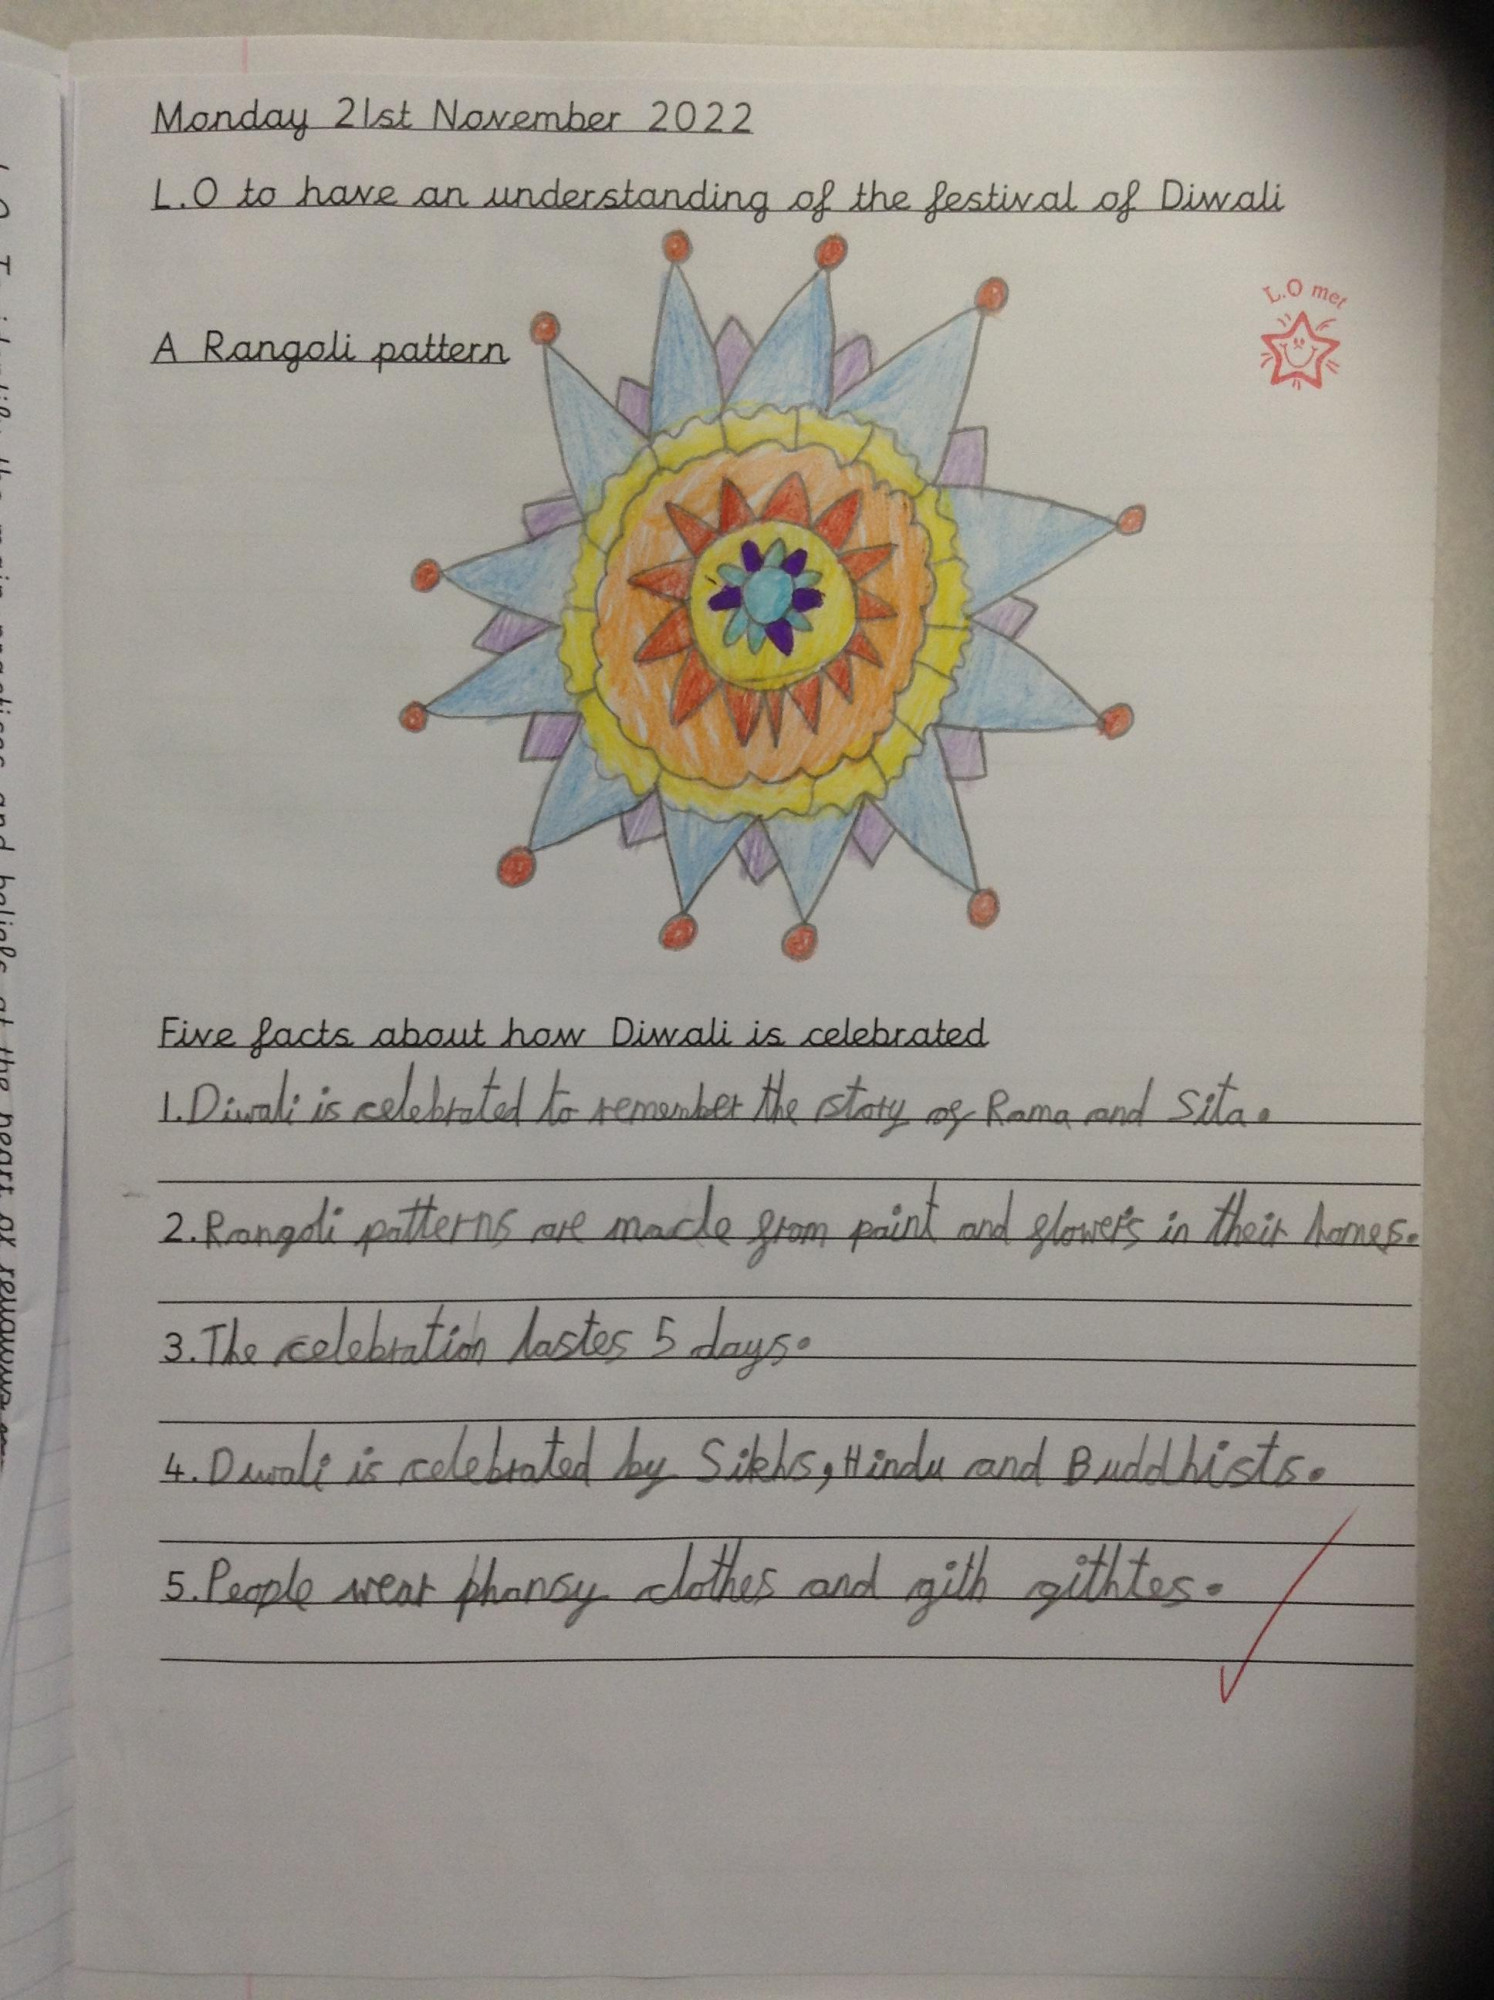 Monday 21st November 2022
L.O to have an understanding of the festival of Diwali
L.O met
A Rangoli pattern
Five facts about how Diwali is celebrated
1. Diwali is celebrated to remember the story of Rama and Sita.
2. Rangoli patterns are made from paint and flowers in their homes.
3. The celebration lastes 5 days.
4. Diwali is celebrated by Sikhs, Hindu and Buddhists.
5. People wear phansy clothes and gith githtes.